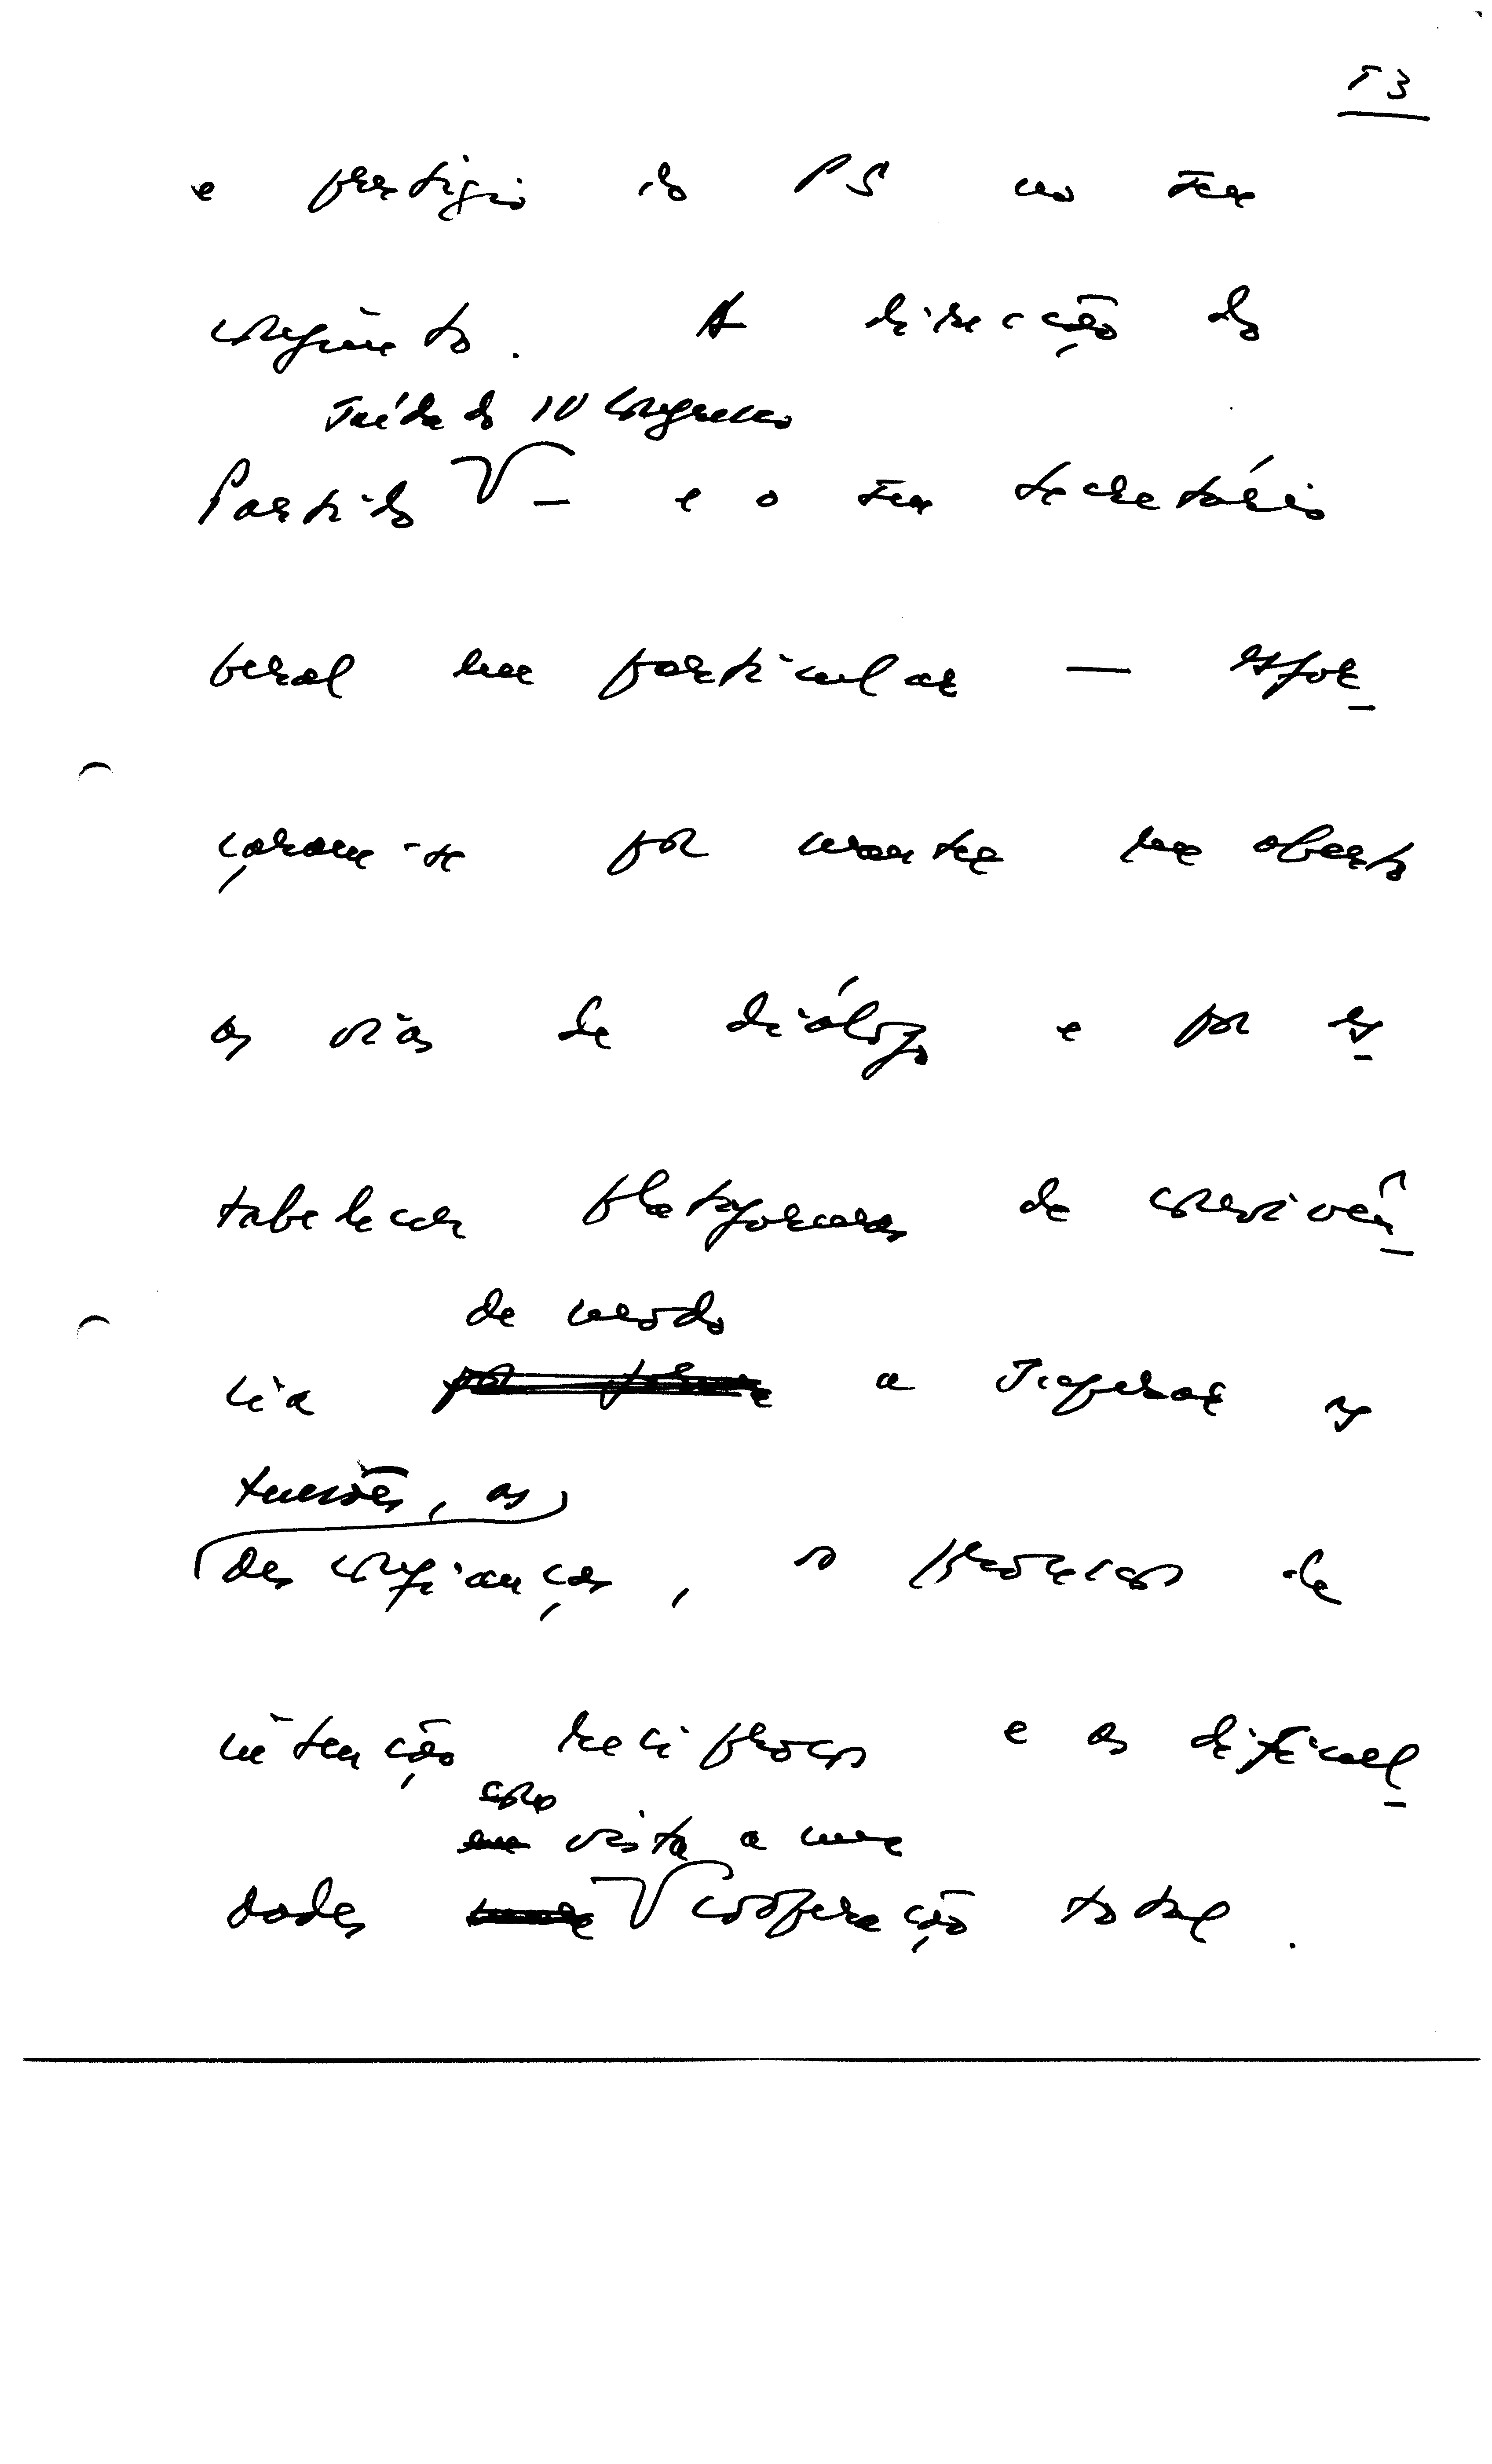 53
e prestígio do PS no seu
conjunto. A direcção do
saída do IV Congresso
Partido — e o seu secretário
Geral em particular — esfor-
çaram-se por manter em aberto
as vias de diálogo e por es-
tabelecer plataformas de convivên-
de modo
cia a superar as
tensões, as
desconfianças, os processos de
intenção recíprocos e as dificul-
com
vista a uma
dades cooperação total.